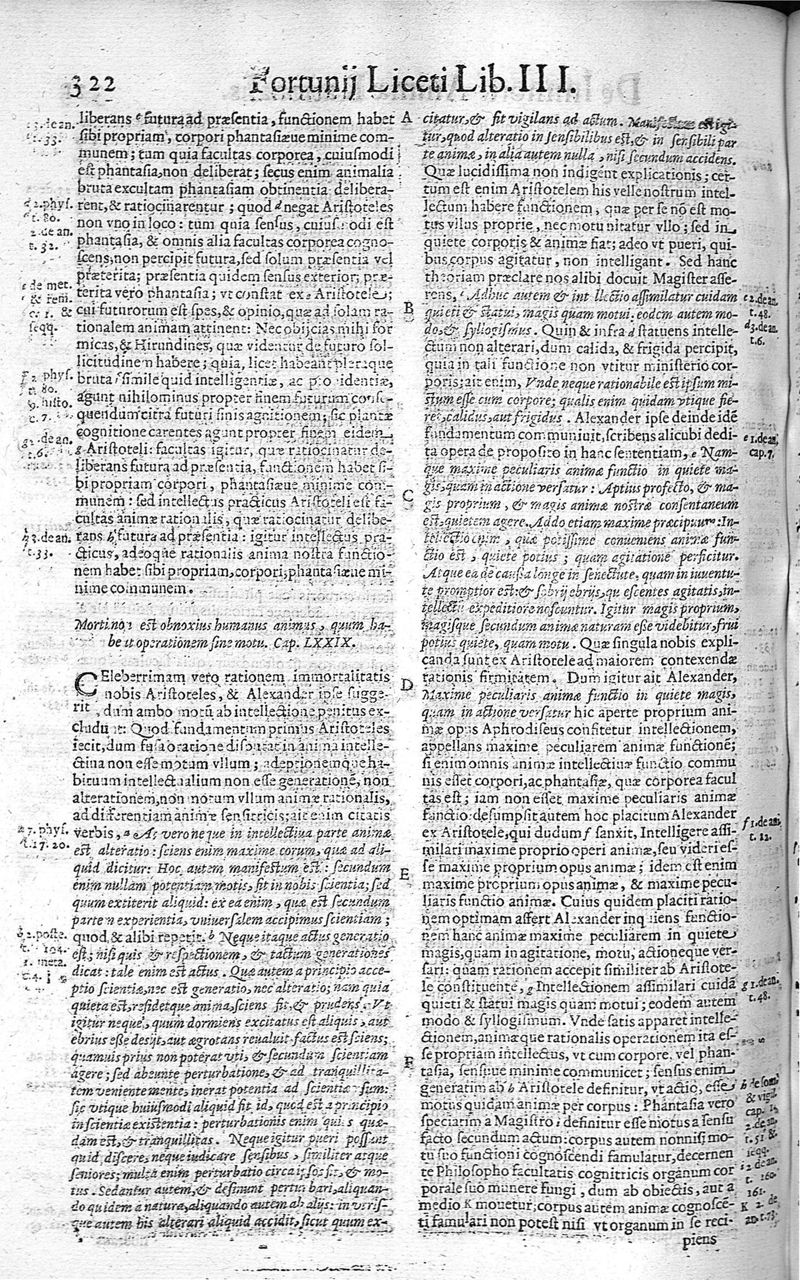 322
Fortunij Liceti Lib. III.
liberans futura ad præsentia, functionem habet
sibi propriam, corpori phantasiæue minime com-
munem; tum quia facultas corporea, cuiusmodi
est phantasia, non deliberat; secus enim animalia
bruta excultam phantasiam obtinentia delibera-
rent, & ratiocinarentur; quod negat Aristoteles
non vno in loco: tum quia sensus, cuiusmodi est
phantasia, & omnis alia facultas corporea cogno-
scens, non percipit futura, sed solum præsentia vel
præterita; præsentia quidem sensus exterior; præ-
terita vero phantasia; vt constat ex Aristotele;
cui futurorum est spes, & opinio, quæ ad solam ra-
tionalem animam attinent: Nec obijcias mihi for-
micas, & Hirundines, quæ videntur de futuro sol-
licitudinem habere; quia, licet habeant pleraque
bruta simile quid intelligentiæ, ac prouidentiæ,
agunt nihilominus propter finem futurum conse-
quendum citra futuri finis agnitionem; sic plantæ
cognitione carentes agunt propter finem eidem
Aristoteli: facultas igitur, quæ ratiocinatur de-
liberans futura ad præsentia, functionem habet si-
bi propriam corpori, phantasiæue minime com-
munem: sed intellectus practicus Aristoteli est fa-
cultas animæ rationalis, quæ ratiocinatur delibe-
rans h futura ad præsentia: igitur intellectus pra-
cticus, adeoque rationalis anima nostra functio-
nem habet sibi propriam, corpori, phantasiæue mi-
nime communem.
Morti non est obnoxius humanus animus, quum ha-
beat operationem sine motu. Cap. LXXIX.
CEleberrimam vero rationem immortalitatis
nobis Aristoteles, & Alexander ipse sugge-
rit, dum ambo motũ ab intellectione penitus ex-
cludunt: Quod fundamentum primus Aristoteles
iecit, dum fusa oratione disputat in anima intelle-
ctiua non esse motum vllum; adeptionemque ha-
bituum intellectualium non esse generationē, non
alterationem, non motum vllum animæ rationalis,
ad differentiam animæ sensitricis; ait enim citatis
verbis, a At vero neque in intellectiua parte animæ
est alteratio: sciens enim maxime eorum, quæ ad ali-
quid dicitur: Hoc autem manifestum est: secundum
enim nullam potentiam motis, fit in nobis scientia; sed
quum extiterit aliquid: ex ea enim, quæ est secundum
partem experientia, vniuersalem accipimus scientiam;
quod, & alibi repetit. b Neque itaque actus generatio
est; nisi quis & respectionem, & tactum generationes
dicat: tale enim est actus. Quæ autem a principio acce-
ptio scientiæ, nec est generatio, nec alteratio; nam quia
quieta est, residetque anima, sciens fit, & prudens. Vt
igitur neque, quum dormiens excitatus est aliquis, aut
ebrius esse desijt, aut ægrotans reualuit factus est sciens;
quamuis prius non poterat vti, & secundum scientiam
agere; sed abeunte perturbatione, & ad tranquillita-
tem veniente mente, inerat potentia ad scientiæ vsum:
sic vtique huiusmodi aliquid fit id, quod est a principio
in scientiæ existentia: perturbationis enim quies quæ-
dam est, & tranquillitas. Neque igitur pueri possunt
quid discere, neque iudicare sensibus, similiter atque
seniores; multa enim perturbatio circa ipsos est, & mo-
tus. Sedantur autem, & desinunt perturbari, aliquan-
do quidem a natura, aliquando autem ab alijs: in vtris-
que autem his alterari aliquid accidit, sicut quum ex-
citatur, & fit vigilans ad actum. Manifestum est igi-
tur, quod alteratio in sensibilibus est, & in sensibili par
te animæ, in alia autem nulla, nisi secundum accidens.
Quæ lucidissima non indigent explicationis; cer-
tum est enim Aristotelem his velle nostrum intel-
lectum habere functionem, quæ per se nō est mo-
tus vllus proprie, nec motu nitatur vllo; sed in
quiete corporis & animæ fiat; adeo vt pueri, qui-
bus corpus agitatur, non intelligant. Sed hanc
theoriam præclare nos alibi docuit Magister asse-
rens, c Adhuc autem & intellectio assimilatur cuidam
quieti & statui, magis quam motui. eodem autem mo-
do, & syllogismus. Quin & infra d statuens intelle-
ctum non alterari, dum calida, & frigida percipit,
quia in tali functione non vtitur ministerio cor-
poris; ait enim, Vnde neque rationabile est ipsum mi-
stum esse cum corpore; qualis enim quidam vtique fie-
ret, calidus, aut frigidus. Alexander ipse deinde idē
fundamentum communiuit, scribens alicubi dedi-
ta opera de proposito in hanc sententiam, e Nam-
que maxime peculiaris animæ functio in quiete ma-
gis, quam in actione versatur: Aptius profecto, & ma-
gis proprium, & magis animæ nostræ consentaneum
est, quietem agere. Addo etiam maxime præcipuum: In-
tellectionem, quæ potissime conueniens animæ fun-
ctio est, quiete potius; quam agitatione perficitur.
Atque ea de caussa longe in senectute, quam in iuuentu-
te promptior est: & sobrij ebrijs, quiescentes agitatis, in-
tellectu expeditiore noscuntur. Igitur magis proprium,
magisque secundum animæ naturam esse videbitur, frui
potius quiete, quam motu. Quæ singula nobis expli-
canda sunt ex Aristotele ad maiorem contexendæ
rationis firmitatem. Dum igitur ait Alexander,
Maxime peculiaris animæ functio in quiete magis,
quam in actione versatur hic aperte proprium ani-
mæ opus Aphrodiseus confitetur intellectionem,
appellans maxime peculiarem animæ functionē;
si enim omnis animæ intellectiuæ functio commu
nis esset corpori, ac phantasiæ, quæ corporea facul
tas est; iam non esset maxime peculiaris animæ
functio: desumpsit autem hoc placitum Alexander
ex Aristotele, qui dudum f sanxit, Intelligere assi-
milari maxime proprio operi animæ, seu videri es-
se maxime proprium opus animæ; idem est enim
maxime proprium opus animæ, & maxime pecu-
liaris functio animæ. Cuius quidem placiti ratio-
nem optimam affert Alexander inquiens functio-
nem hanc animæ maxime peculiarem in quiete
magis, quam in agitatione, motu, actioneque ver-
sari: quam rationem accepit similiter ab Aristote-
le constituente, g Intellectionem assimilari cuidã
quieti & statui magis quam motui; eodem autem
modo & syllogismum. Vnde satis apparet intelle-
ctionem, animæque rationalis operationem ita es-
se propriam intellectus, vt cum corpore, vel phan-
tasia, sensiue minime communicet; sensus enim
generatim ab h Aristotele definitur, vt actio, esse
motus quidam animæ per corpus: Phantasia vero
speciatim a Magistro i definitur esse motus a sensu
facto secundum actum: corpus autem nonnisi mo-
tu suo functioni cognoscendi famulatur, decernen
te Philosopho facultatis cognitricis organum cor
porale suo munere fungi, dum ab obiectis, aut a
medio K mouetur; corpus autem animæ cognosce-
ti famulari non potest nisi vt organum in se reci-
piens
A
B
C
D
E
F